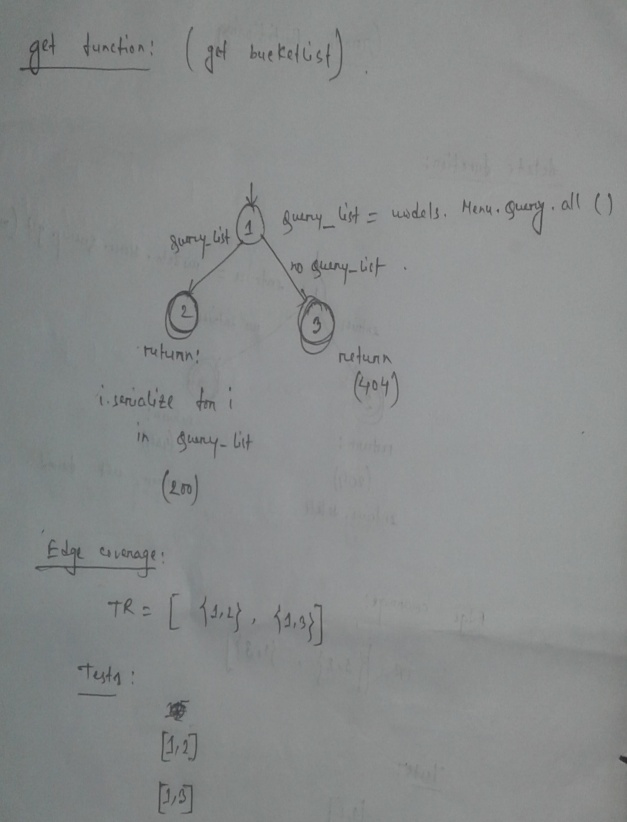 get function: (get bucketlist).
1
query_list = models. Menu. Query. all ()
query_list
no query_list.
2
3
return:
return
(404)
i.serialize for i
in query_list
(200)
Edge coverage:
TR = [ {1,2}, {1,3}]
Tests:
[1,2]
[1,3]